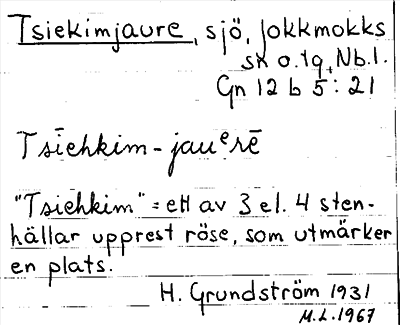 Tsiekimjaure, sjö, Jokkmokks
sn o. tg, Nb. l.
Gn 12 b 5:21
Tsiehkim-jauᵉrē
"Tsiehkim" = ett av 3 el. 4 sten-
hällar upprest röse, som utmärker
en plats.
H. Grundström 1931
M.L. 1967